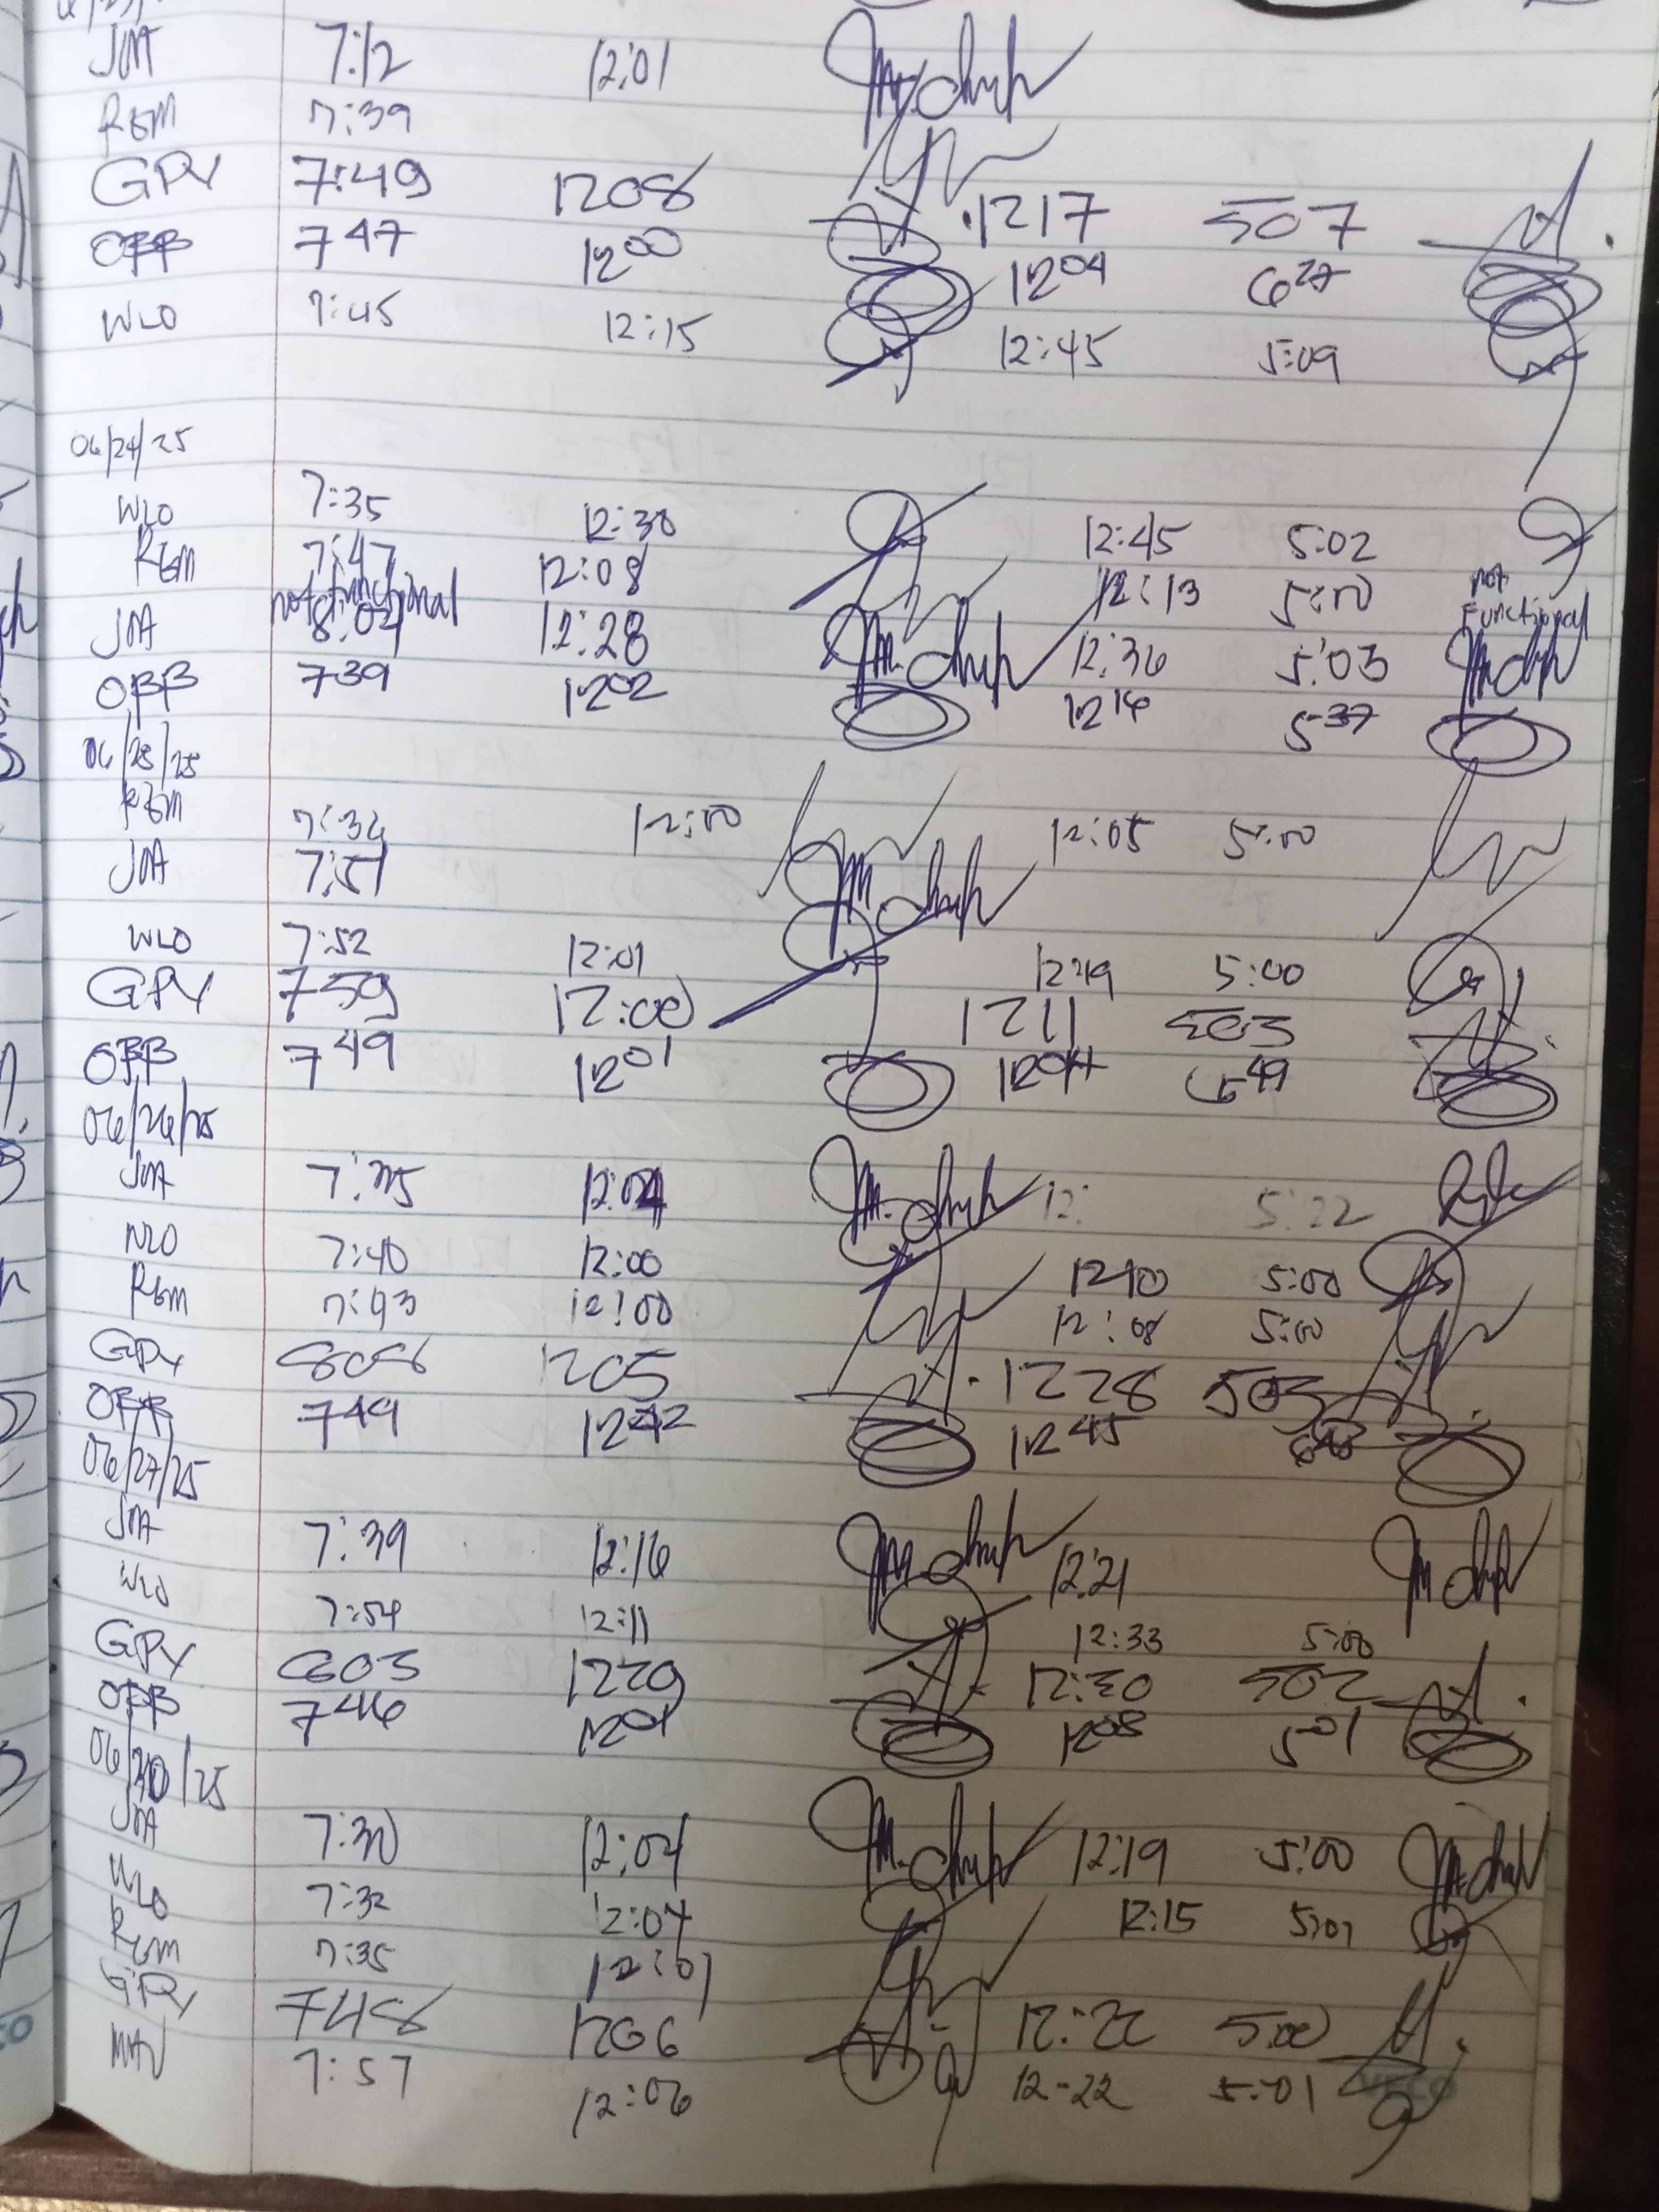 JMA 7:12 12:01
RGM 7:39
GPY 7:49 1208 1217 507
OBB 747 1200 1204 627
WLO 7:45 12:15 12:45 5:09
06/24/25
WLO 7:35 12:30 12:45 5:02
RGM 7:47 12:08 12:13 5:00 not
not functional Functional
JMA 8:04 12:28 12:36 5:03
OBB 739 1202 1216 537
06/25/25
RGM 7:36 12:00 12:05 5:00
JMA 7:51
WLO 7:52 12:01 12:19 5:00
GPY 759 12:00 1211 503
OBB 749 1201 1204 649
06/26/25
JMA 7:35 12:04 12: 5:22
WLO 7:40 12:00 1210 5:00
RGM 7:43 12:00 12:08 5:00
GPY 806 1205 1228 503
OBB 749 1242 1245
06/27/25
JMA 7:39 12:16 12:21
WLO 7:54 12:11 12:33 5:00
GPY 803 1229 12:30 502
OBB 746 1201 1208 501
06/30/25
JMA 7:30 12:04 12:19 5:00
WLO 7:32 12:04 12:15 5:01
RGM 7:35 12:01
GPY 748 1206 12:22 5:00
7:57 12:06 12-22 5:01
VECO